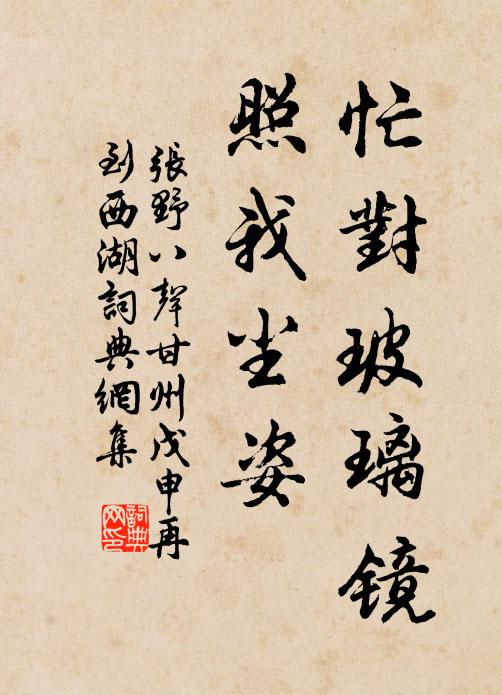 忙對玻璃鏡
照我尘姿
張野八聲甘州戊申再
到西湖詞典網集
詞典
网印